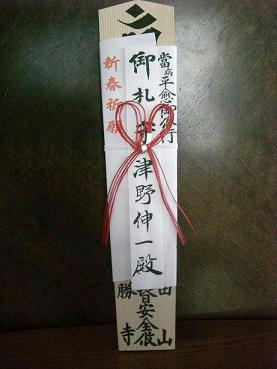 當病平愈御修行
御札
津野伸一殿
新春祈願
山
安全
勝寺